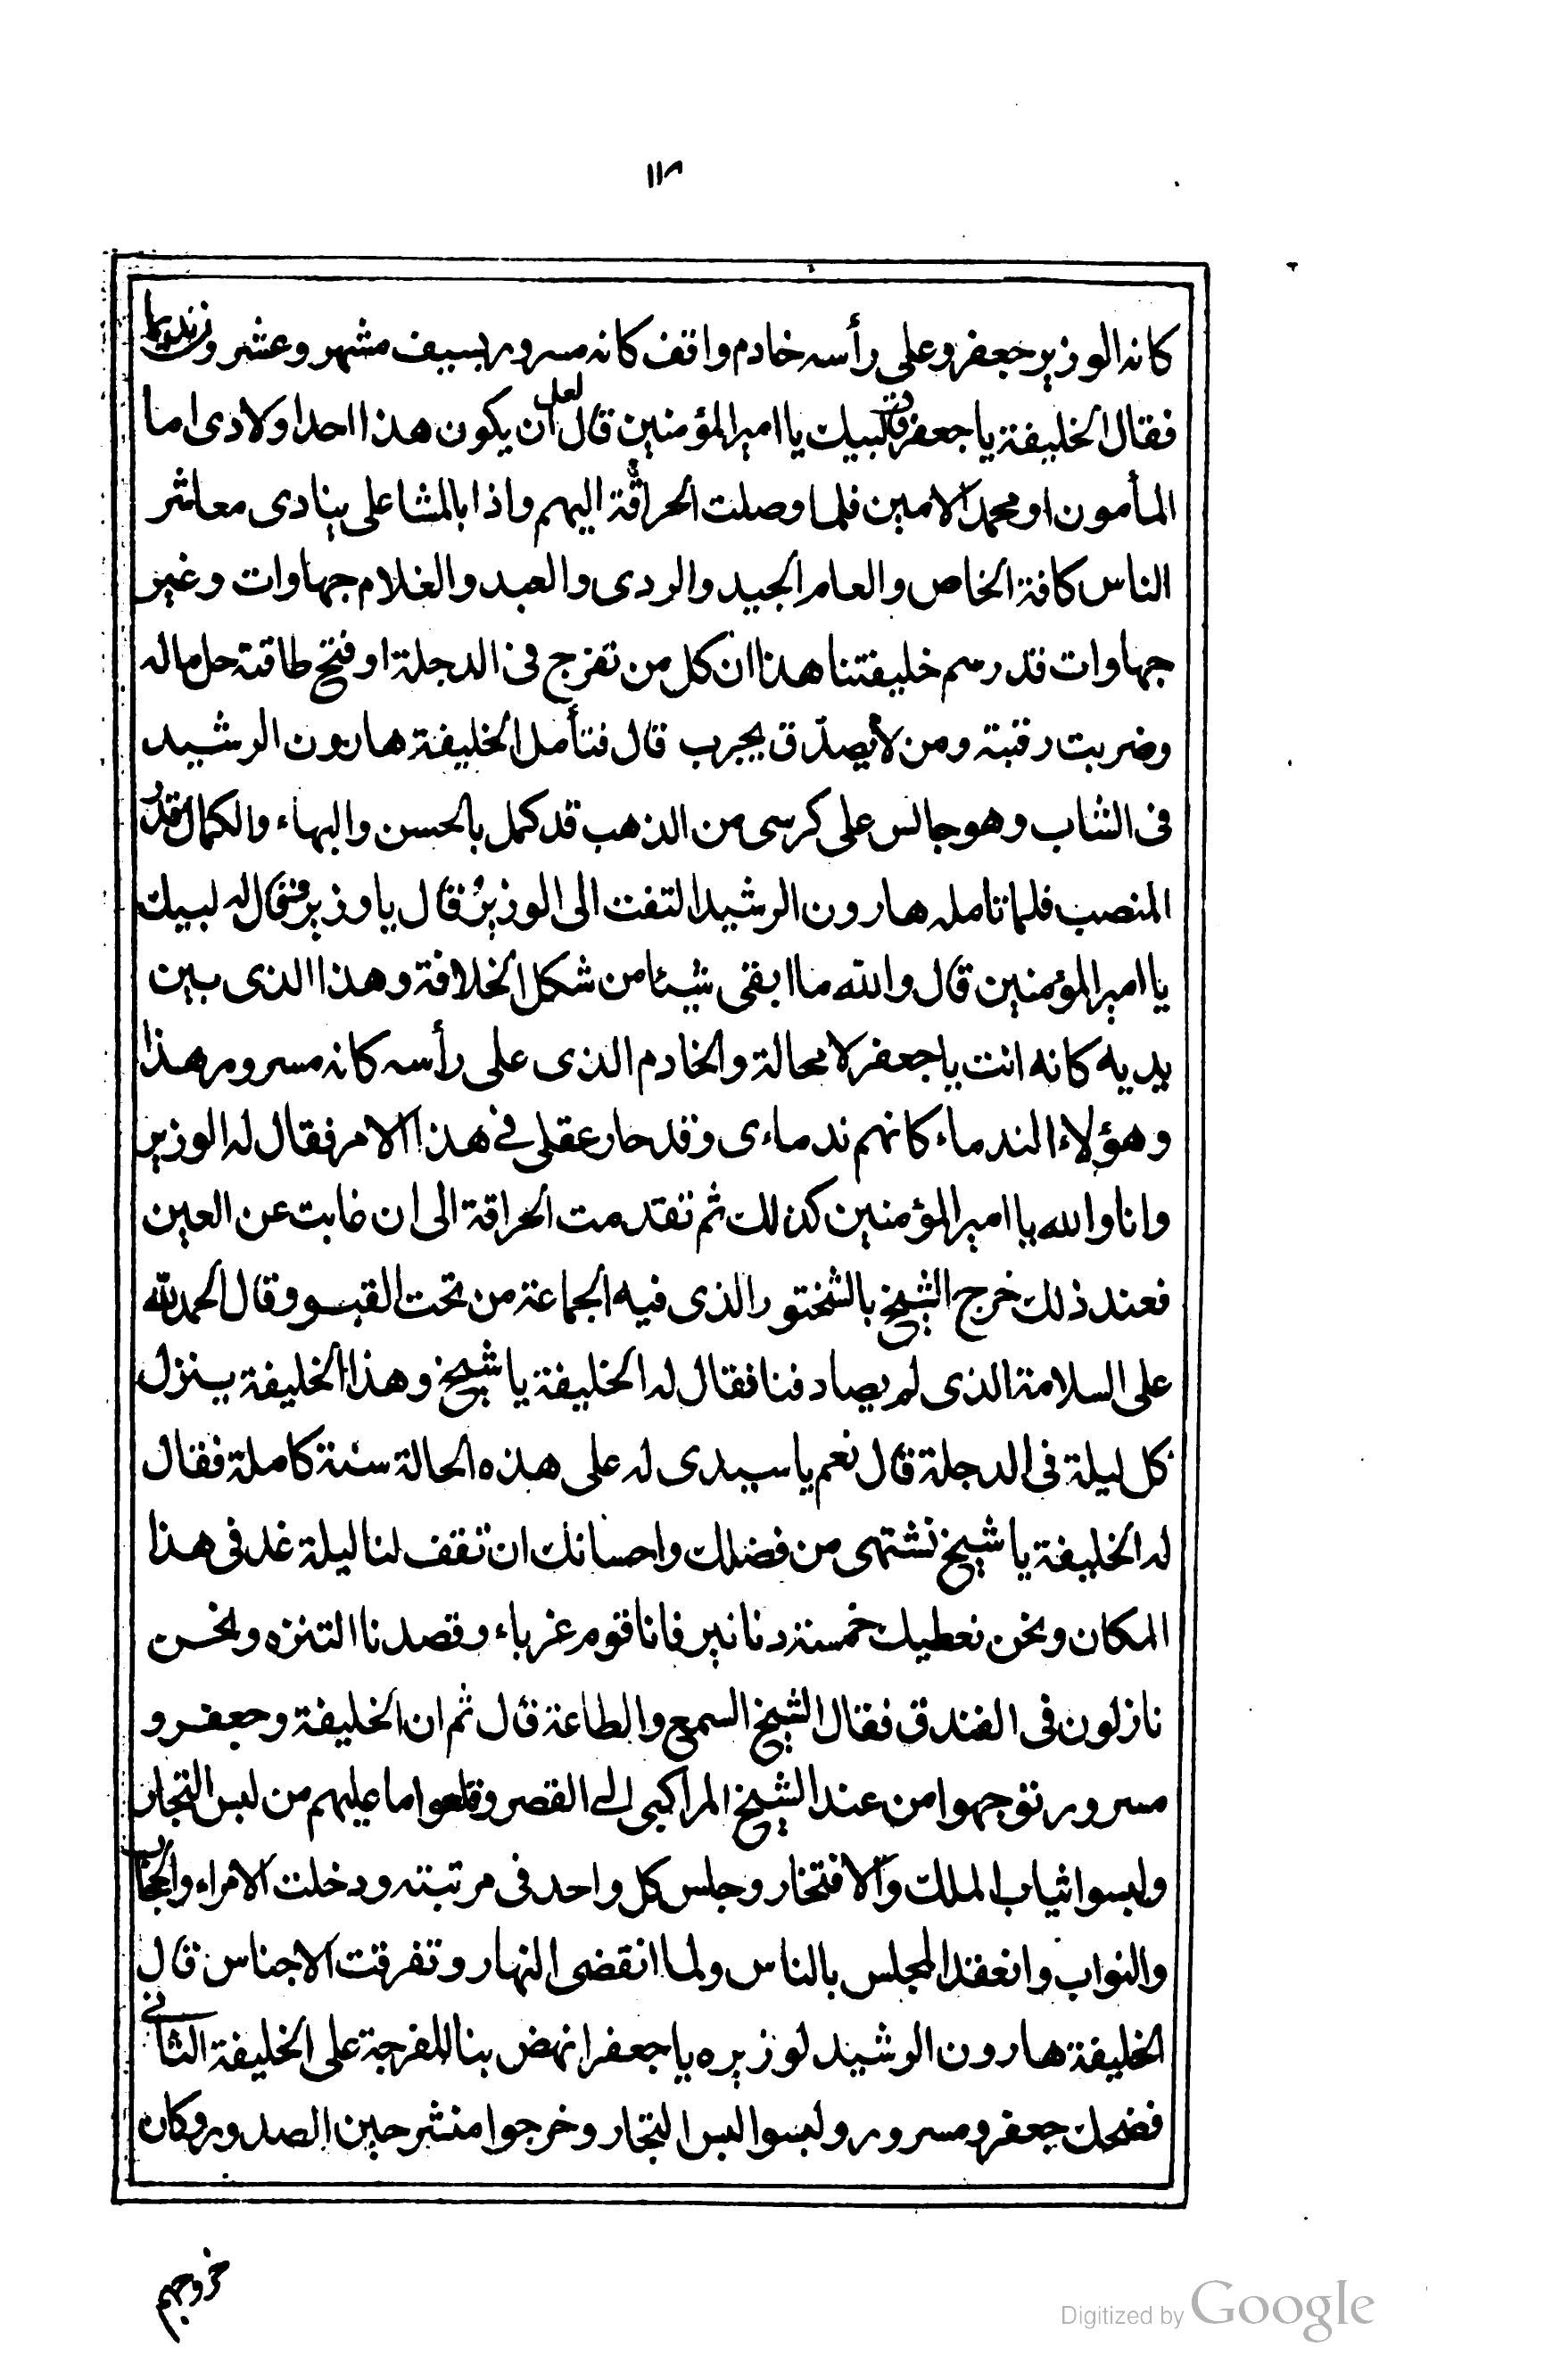 ١١٢
كانه الوزير جعفر وعلى رأسه خادم واقف كانه مسرور بسيف مشهر وعشرون نديما
فقال الخليفة يا جعفر قال لبيك يا امير المؤمنين قال لعل ان يكون هذا احد اولادى اما
المأمون او محمد الامين فلما وصلت الحراقة اليهم واذا بالمشاعلى ينادى معاشر
الناس كافة الخاص والعام الجيد والردى والعبد والغلام جهاوات وغير
جهاوات قد رسم خليفتنا هذا ان كل من تفرج فى الدجلة او فتح طاقته حل ماله
وضربت رقبته ومن لا يصدّق يجرب قال فتأمل الخليفة هارون الرشيد
فى الشاب وهو جالس على كرسى من الذهب قد كمل بالحسن والبهاء والكمال وقدر
المنصب فلما تامله هارون الرشيد التفت الى الوزير وقال يا وزير فقال له لبيك
يا امير المؤمنين قال والله ما ابقى شيئا من شكل الخلافة وهذا الذى بين
يديه كانه انت يا جعفر لا محالة والخادم الذى على رأسه كانه مسرور هذا
وهؤلاء الندماء كانهم ندماءى وقد حار عقلى فى هذا الامر فقال له الوزير
وانا والله يا امير المؤمنين كذلك ثم تقدمت الحراقة الى ان غابت عن العين
فعند ذلك خرج الشيخ بالشختور الذى فيه الجماعة من تحت القبو وقال الحمد لله
على السلامة الذى لم يصادفنا فقال له الخليفة يا شيخ وهذا الخليفة ينزل
كل ليلة فى الدجلة قال نعم يا سيدى له على هذه الحالة سنة كاملة فقال
له الخليفة يا شيخ نشتهى من فضلك واحسانك ان تقف لنا ليلة غد فى هذا
المكان ونحن نعطيك خمسة دنانير فانا قوم غرباء وقصدنا التنزه ونحن
نازلون فى الفندق فقال الشيخ السمع والطاعة قال ثم ان الخليفة وجعفر و
مسرور توجهوا من عند الشيخ المراكبى الى القصر وقلعوا ما عليهم من لبس التجار
ولبسوا ثياب الملك والافتخار وجلس كل واحد فى مرتبته ودخلت الامراء والحجاب
والنواب وانعقد المجلس بالناس ولما انقضى النهار وتفرقت الاجناس قال
الخليفة هارون الرشيد لوزيره يا جعفر انهض بنا للفرجة على الخليفة الثانى
فضحك جعفر ومسرور ولبسوا لبس التجار وخرجوا منشرحين الصدور وكان
خروجهم
Digitized by Google